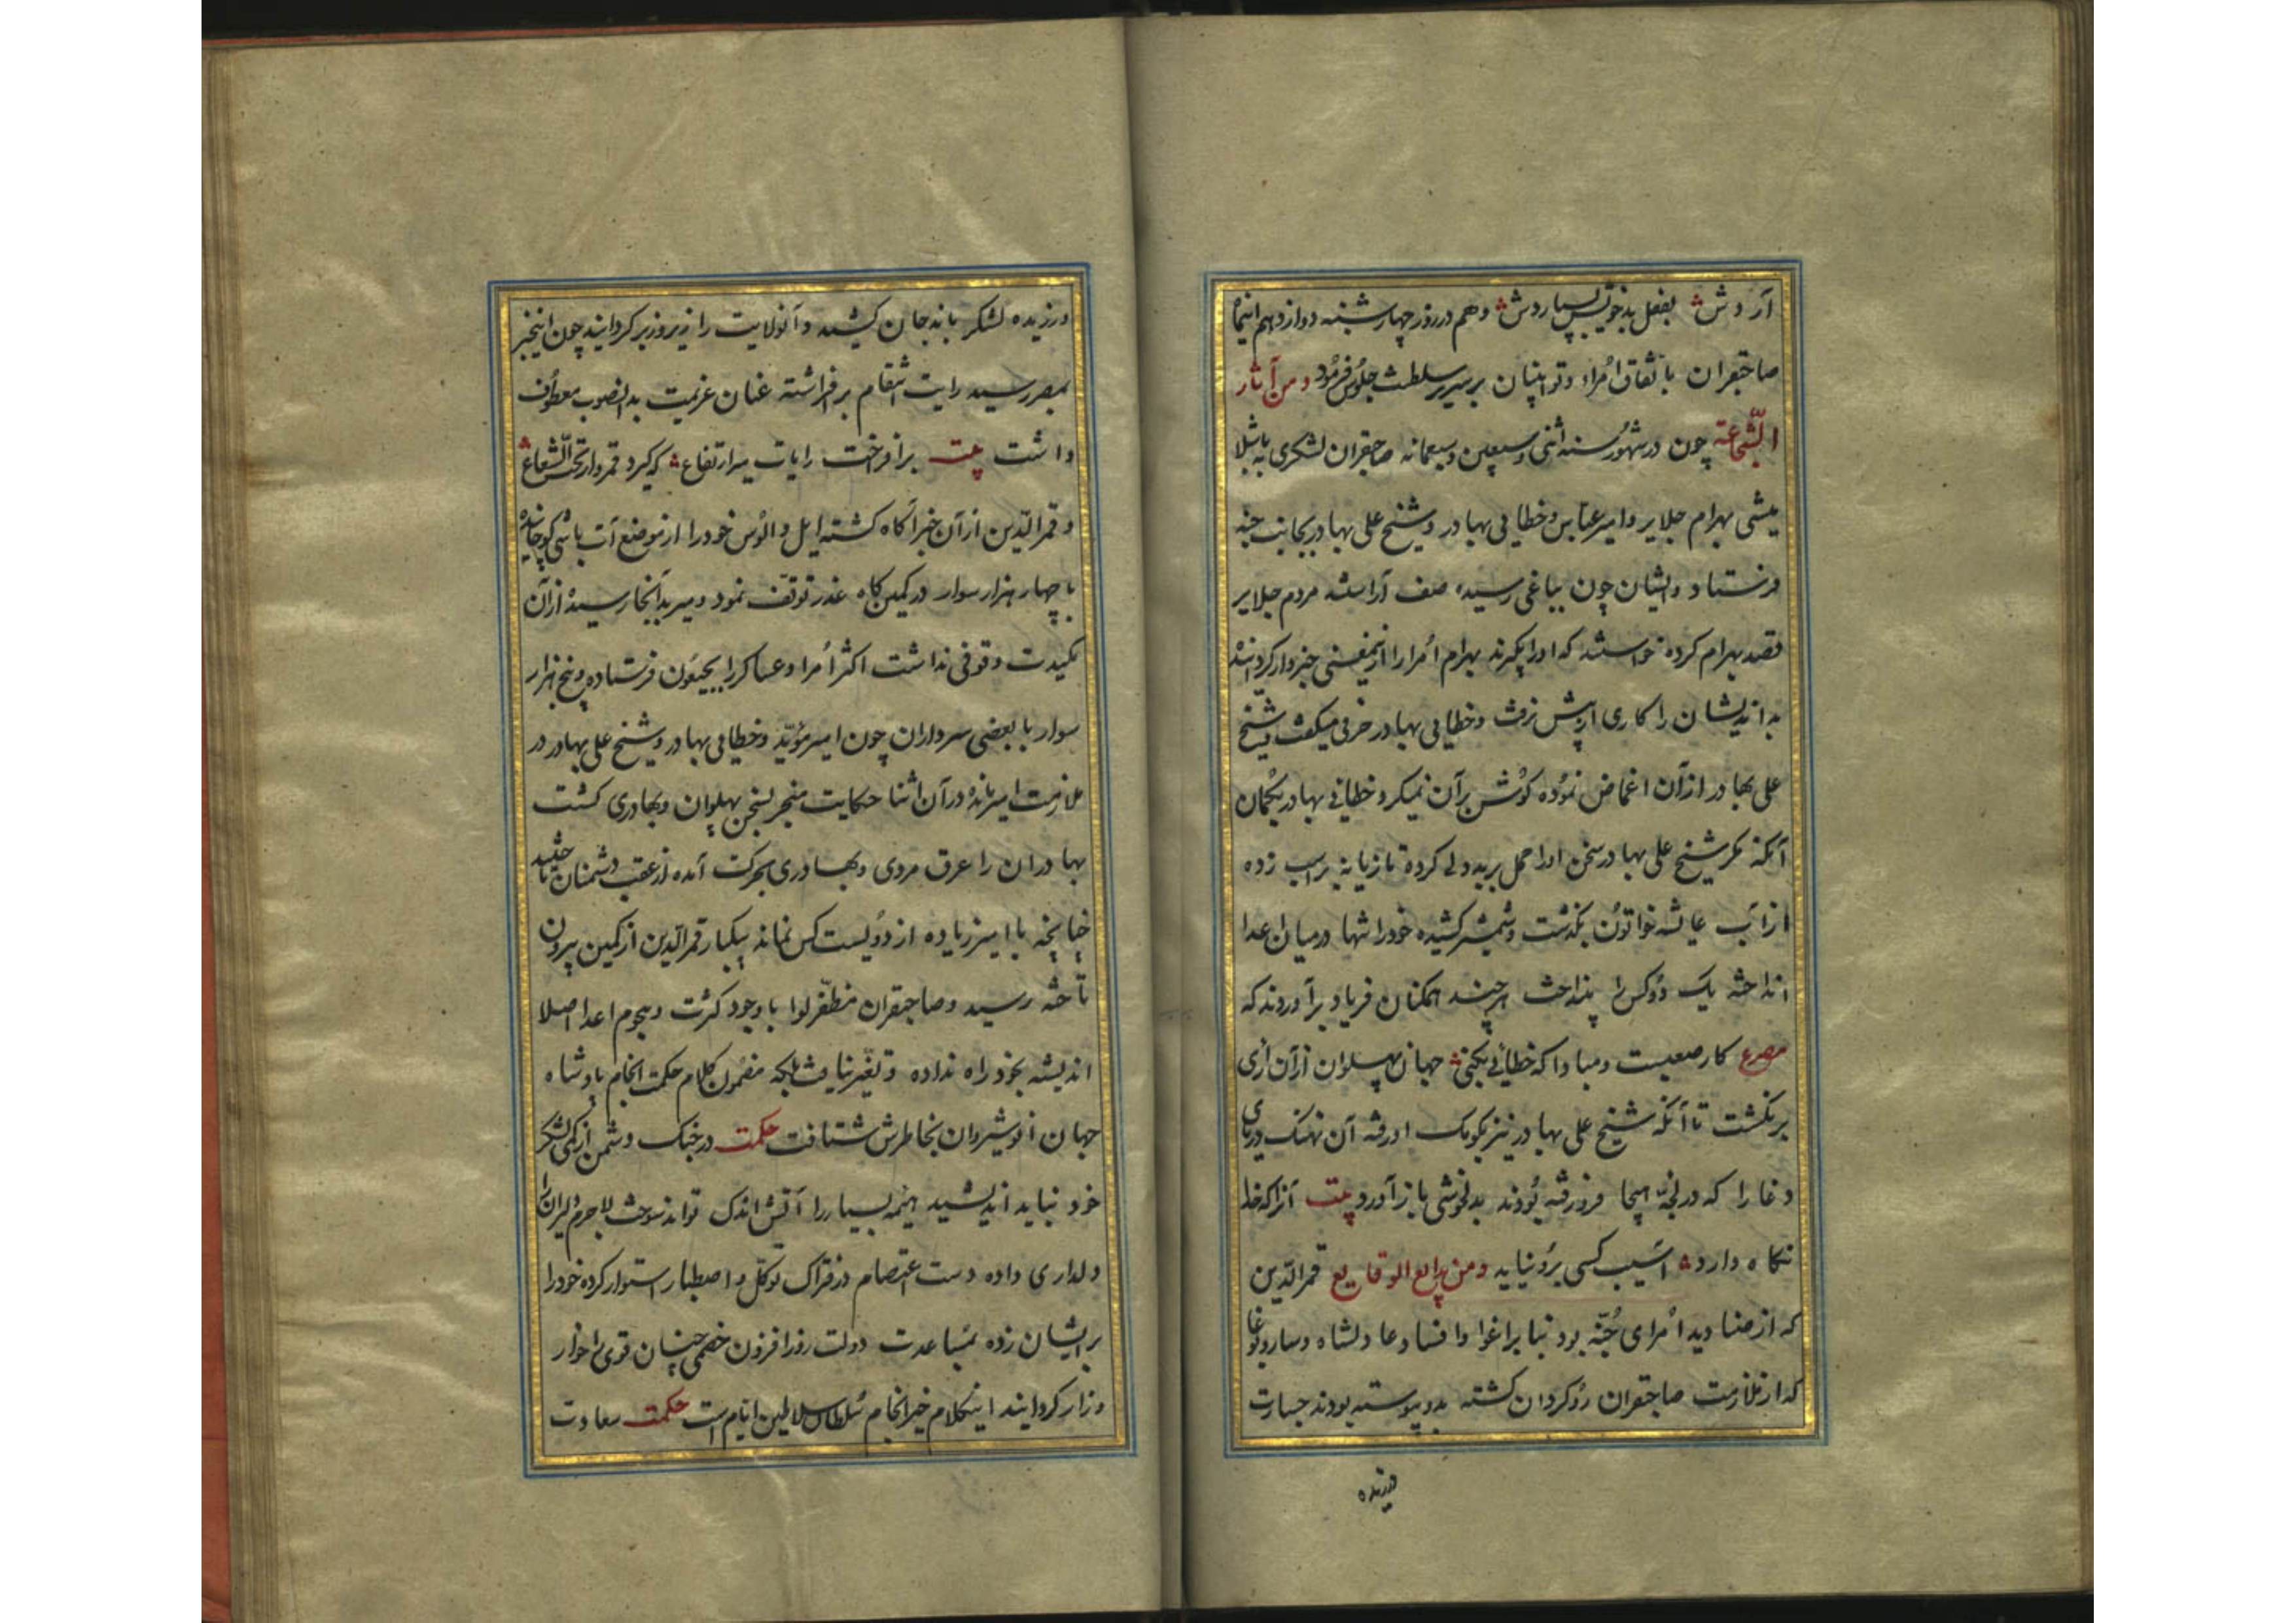 آردش بفعل بد خویش بسپاردش و هم در روز چهارشنبه دوازدهم اینماه
صاحبقران باتفاق اُمراء و نوینان بر سریر سلطنت جلوس فرمود و من آثار
الشجاعة چون در شهور سنه اثنی و سبعین و سبعمائه صاحبقران لشکری به باشلا
میشی بهرام جلایر و امیر عباس و خطایی بهادر و شیخ علی بهادر بجانب جته
فرستاد و ایشان چون بیاغی رسیده صف آراستند مردم جلایر
قصد بهرام کرده خواستند که اورا بگیرند بهرام اُمرا را ازینمعنی خبردار کردانید
بداندیشان را کاری از پیش نرفت و خطایی بهادر حرفی میگفت و شیخ
علی بهادر از آن اغماض نموده گوش بر آن نمیکرد خطائی بهادر بگمان
آنکه مکر شیخ علی بهادر سخن اورا حمل بر بددلی کرده تازیانه بر اسب زده
از آب عایشه خواتون بگذشت و شمشیر کشیده خودرا تنها در میان اعدا
انداخته یک دو کس را بنداخت هر چند همکنان فریاد برآوردند که
مصرع کار صعبست و مبادا که خطائی بکنی جهان پهلوان از آن ازی
برنگشت تا آنکه شیخ علی بهادر نیز بکومک او رفته آن نهنک دریای
وغا را که در لجّه هیجا فرو رفته بودند بدلخوشی باز آورد بیت آنرا که خدا
نکاه دارد آسیب کسی برو نیاید و من بدایع الوقایع قمرالدین
که از صنادید اُمرای جته بود بنا بر اغوا و افساد عادلشاه و ساربوغا
که از ملازمت صاحبقران رو کردان کشته بدو پیوسته بودند جسارت
ورزیده
ورزیده لشکر باندجان کشید و آنولایت را زیر و زبر کردانید چون اینخبر
بمیر رسید رایت انتقام برافراشته عنان عزیمت بدانصوب معطوف
داشت بیت برافراخت رایات میر ارتفاع که گیرد قمروار تحت الشعاع
و قمرالدین از آن خبر آکاه کشته ایل و الوس خودرا از موضع آت باشی کوچانیده
با چهار هزار سوار در کمین کاه غدر توقف نمود و میر بدآنجا رسیده از آن
مکیدت وقوفی نداشت اکثر اُمرا و عساکر را بجیغون فرستاده و پنج هزار
سوار با بعضی سرداران چون امیر مؤید و خطایی بهادر و شیخ علی بهادر در
ملازمت امیر مانده در آن اثنا حکایت منجر بسخن پهلوان و بهادری کشت
بهادران را عرق مردی و بهادری بحرکت آمده از عقب دشمنان تاختند
چنانچه با امیر زیاده از دویست کس نماند بیکبار قمرالدین از کمین بیرون
تاخته رسید و صاحبقران مظفر لوا با وجود کثرت و هجوم اعدا اصلا
اندیشه بخود راه نداده و تغیر نیافت بلکه مضمون کلام حکمت انجام پادشاه
جهان انوشیروان بخاطرش شتافت حکمت در جنک دشمن از کمی لشکر
خود نباید اندیشید هیمه بسیار را آتش اندک تواند سوخت لاجرم دلیران را
دلداری داده دست اعتصام در فتراک توکل و اصطبار استوار کرده خودرا
بر ایشان زده بمساعدت دولت روزافزون خصمی چنان قوی را خوار
و زار کردانید اینکلام خیر انجام سلطان سلاطین ایام است حکمت سعادت